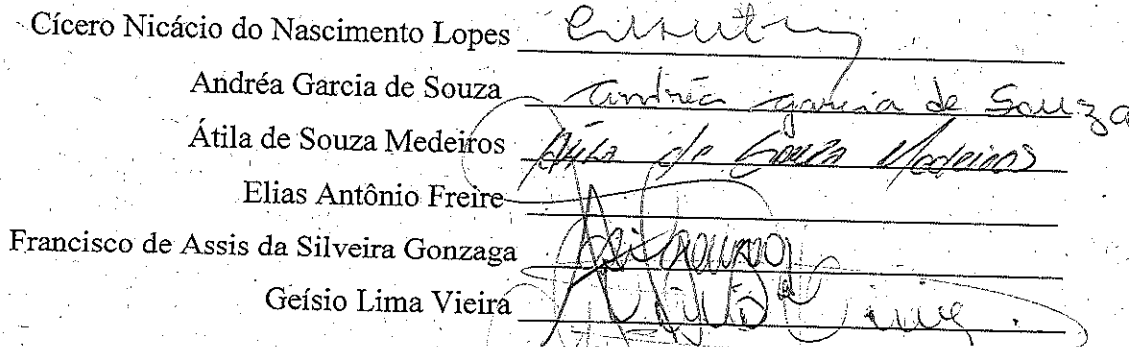 Cícero Nicácio do Nascimento Lopes
Andréa Garcia de Souza Andréa Garcia de Souza
Átila de Souza Medeiros Átila de Souza Medeiros
Elias Antônio Freire
Francisco de Assis da Silveira Gonzaga
Geísio Lima Vieira